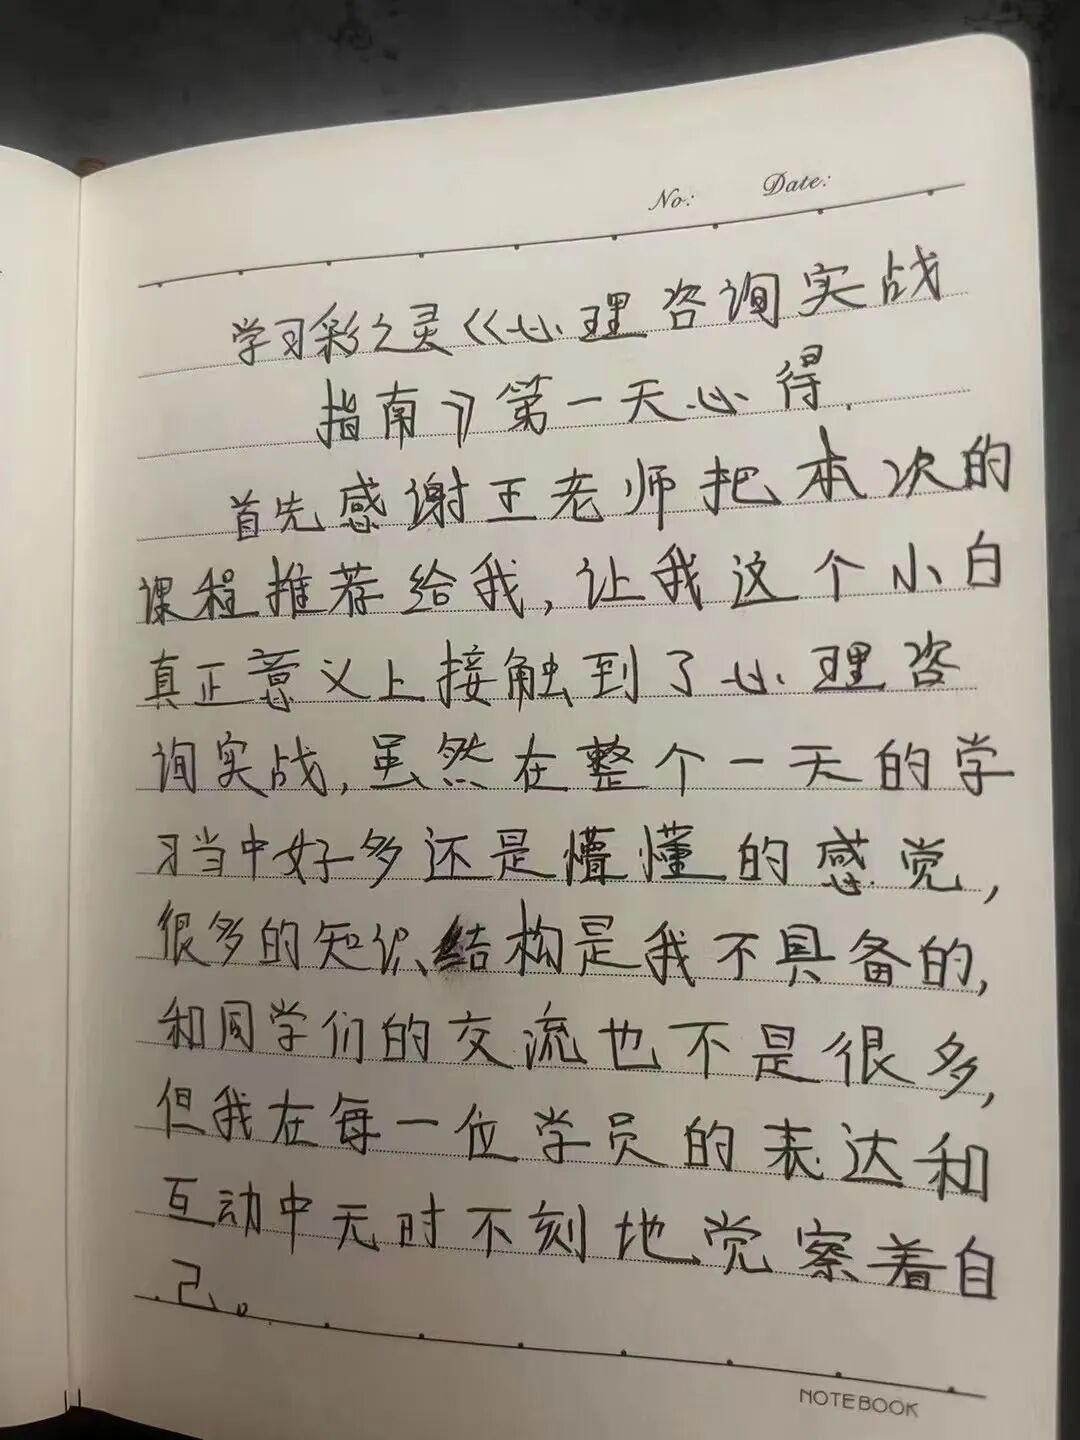 No: Date:
学习彩之灵《心理咨询实战
指南》第一天心得.
首先感谢王老师把本次的
课程推荐给我,让我这个小白
真正意义上接触到了心理咨
询实战,虽然在整个一天的学
习当中好多还是懵懂的感觉,
很多的知识结构是我不具备的,
和同学们的交流也不是很多,
但我在每一位学员的表达和
互动中无时不刻地觉察着自
己。
NOTEBOOK